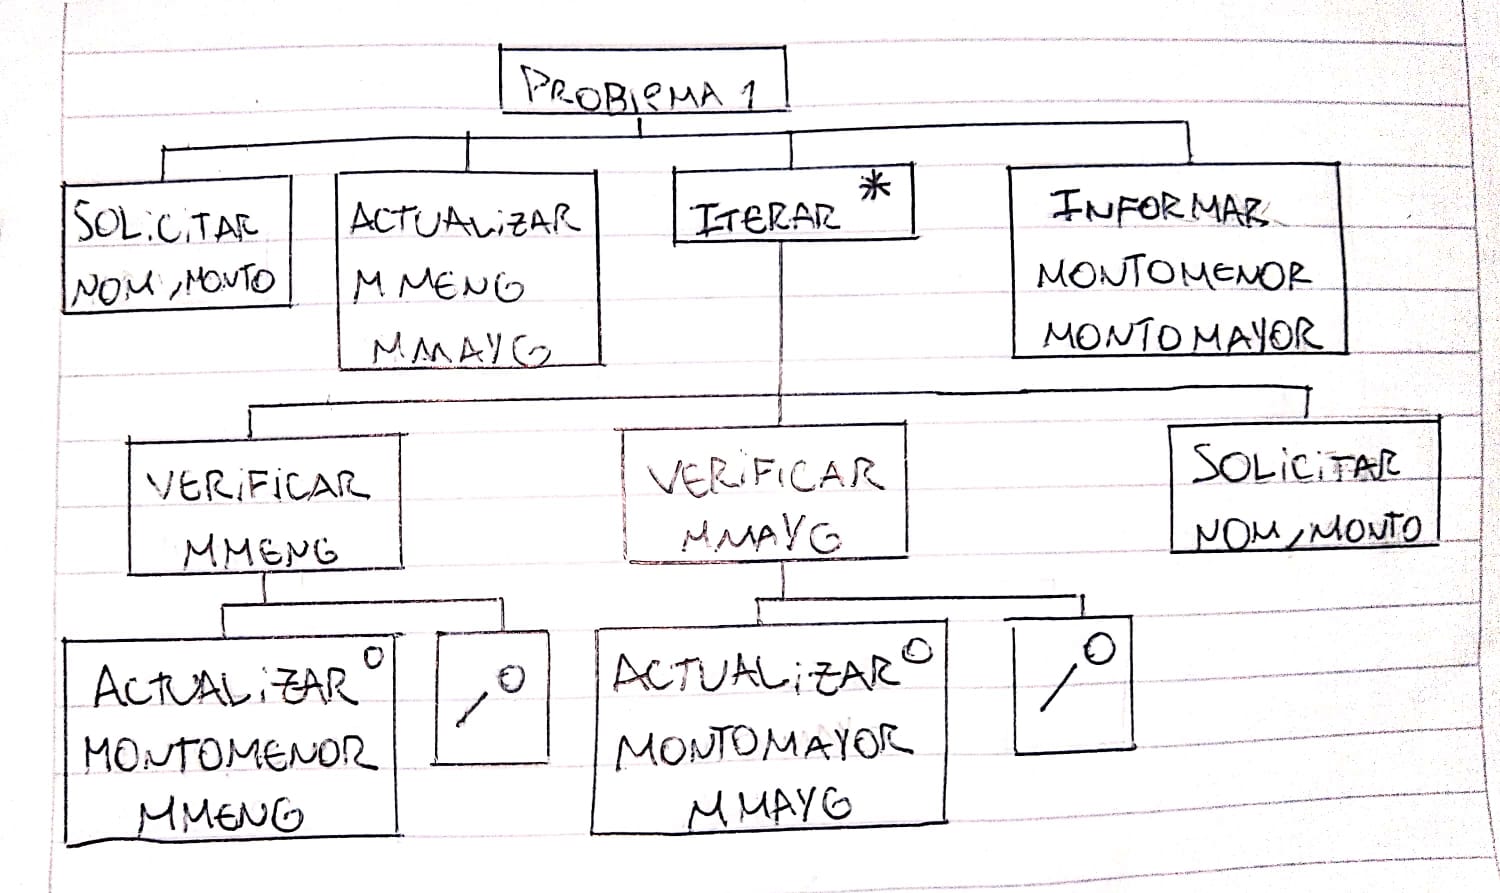 PROBLEMA 1
SOLICITAR
NOM, MONTO
ACTUALIZAR
MMENG
MMAYG
ITERAR *
INFORMAR
MONTOMENOR
MONTOMAYOR
VERIFICAR
MMENG
VERIFICAR
MMAYG
SOLICITAR
NOM, MONTO
ACTUALIZAR O
MONTOMENOR
MMENG
/ O
ACTUALIZAR O
MONTOMAYOR
MMAYG
/ O